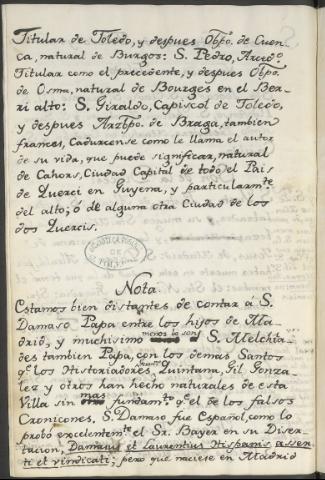 Titular de Toledo, y despues Obpo. de Cuen-
ca, natural de Burgos: S. Pedro, Arcedo.
Titular como el precedente, y despues Obpo.
de Osma, natural de Bourges en el Ber-
ri alto: S. Giraldo, Capiscol de Toledo,
y despues Arzbpo. de Braga, tambien
frances, Cadurcense como le llama el autor
de su vida, que puede significar, natural
de Cahors, Ciudad Capital de todo el Pais
de Querci en Guyena, y particularmte
del alto; ó de alguna otra Ciudad de los
dos Quercis.
Nota
Estamos bien distantes de contar a S.
Damaso Papa entre los hijos de Ma-
drid, y muchisimo menos lo son S. Melchia-
des tambien Papa, con los demas Santos
qe. los Historiadores, Quintana, Gil Gonza-
lez y otros han hecho naturales de esta
Villa sin mas fundamto. qe. el de los falsos
Cronicones. S. Damaso fue Español, como lo
probó excelentemte. el Sr. Bayer en su Diser-
tacion, Damasus et Laurentius Hispanis asser-
ti et vindicati; pero que naciese en Madrid